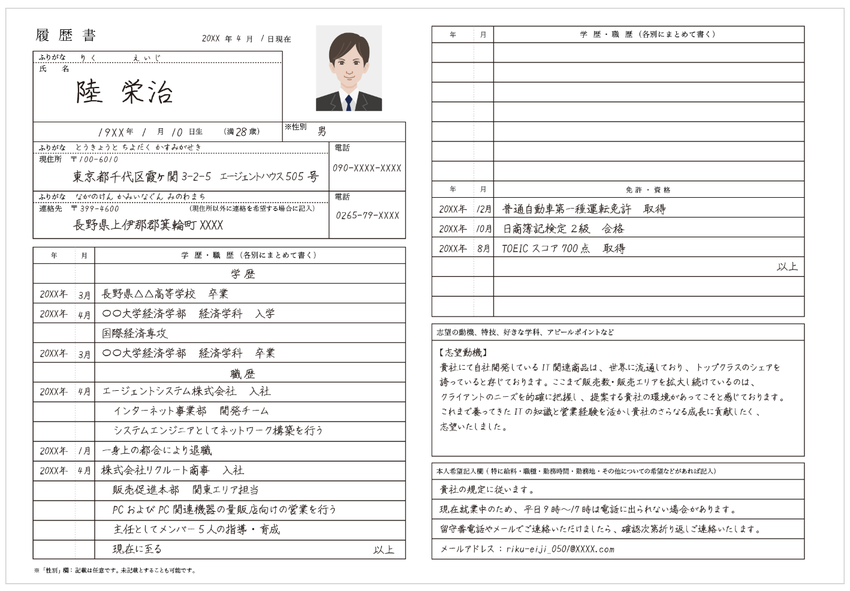 履 歴 書
20XX 年 4 月 1 日現在
ふりがな りく えいじ
氏 名
陸 栄治
19XX 年 1 月 10 日生 (満 28 歳)
※性別 男
ふりがな とうきょうと ちよだく かすみがせき
電話
現住所 〒100-6010
090-XXXX-XXXX
東京都千代区霞ヶ関 3-2-5 エージェントハウス 505 号
ふりがな ながのけん かみいなぐん みのわまち
電話
連絡先 〒399-4600 (現住所以外に連絡を希望する場合に記入)
0265-79-XXXX
長野県上伊那郡箕輪町 XXXX
年 月 学 歴・職 歴(各別にまとめて書く)
学 歴
20XX年 3月 長野県△△高等学校 卒業
20XX年 4月 〇〇大学経済学部 経済学科 入学
国際経済専攻
20XX年 3月 〇〇大学経済学部 経済学科 卒業
職 歴
20XX年 4月 エージェントシステム株式会社 入社
インターネット事業部 開発チーム
システムエンジニアとしてネットワーク構築を行う
20XX年 1月 一身上の都合により退職
20XX年 4月 株式会社リクルート商事 入社
販売促進本部 関東エリア担当
PC および PC 関連機器の量販店向けの営業を行う
主任としてメンバー 5 人の指導・育成
現在に至る 以上
※「性別」欄:記載は任意です。未記載とすることも可能です。
年 月 学 歴・職 歴(各別にまとめて書く)
年 月 免 許・資 格
20XX年 12月 普通自動車第一種運転免許 取得
20XX年 10月 日商簿記検定 2級 合格
20XX年 8月 TOEIC スコア 700 点 取得
以上
志望の動機、特技、好きな学科、アピールポイントなど
【志望動機】
貴社にて自社開発している IT 関連商品は、世界に流通しており、トップクラスのシェアを
誇っていると存じております。ここまで販売数・販売エリアを拡大し続けているのは、
クライアントのニーズを的確に把握し、提案する貴社の環境があってこそと感じております。
これまで養ってきた IT の知識と営業経験を活かし貴社のさらなる成長に貢献したく、
志望いたしました。
本人希望記入欄(特に給料・職種・勤務時間・勤務地・その他についての希望などがあれば記入)
貴社の規定に従います。
現在就業中のため、平日 9 時〜17 時は電話に出られない場合があります。
留守番電話やメールでご連絡いただけましたら、確認次第折り返しご連絡いたします。
メールアドレス : riku-eiji_0501@XXXX.com